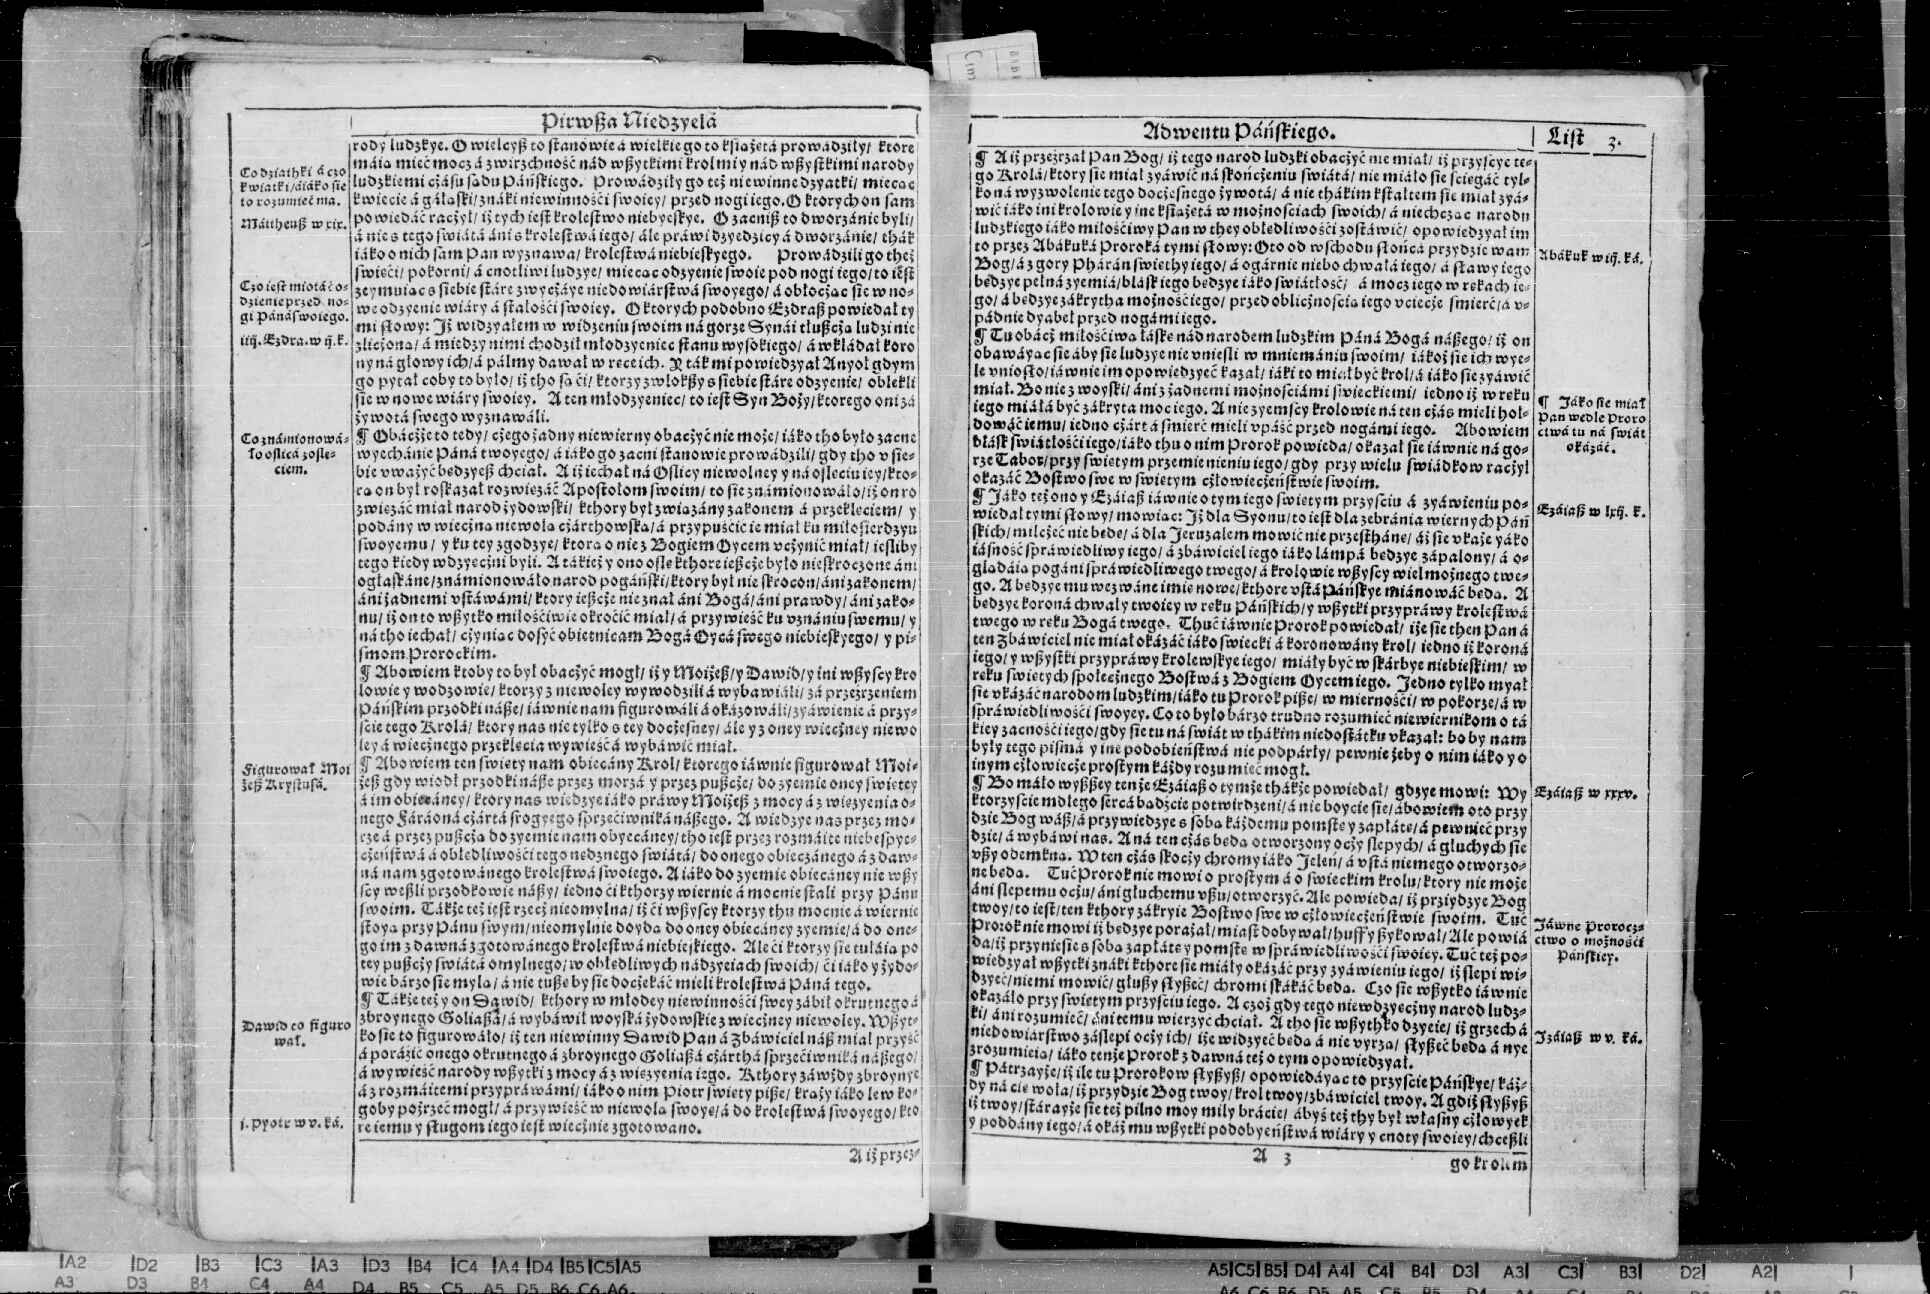 Pirwßa Niedzyelá
rody ludzkye. O wielcyß to stanowie á wielkie go to książetá prowádziły/ ktore
máia mieć mocz á zwirzchność nád wßytkimi krolmi y nád wßystkimi narody
ludzkiemi cżásu sądu Páńskiego. Prowádziły go też niewinne dzyatki/ miecąc
kwiecie á gáłąski/ znáki niewinnośći swoiey/ przed nogi iego. O ktorych on sam
powiedáć racżył/ iż tych iest krolestwo niebyeskye. O zacniß to dworzánie byli/
á nie s tego swiátá áni s krolestwá iego/ ále práwi dzyedzicy á dworzánie/ thák
iáko o nich sam Pan wyznawa/ krolestwá niebieskyego. Prowádzili go theż
swieći/ pokorni/ á cnotliwi ludzye/ miecąc odzyenie swoie pod nogi iego/ to iest
zeymuiąc s siebie stáre zwycżáye niedowiárstwá swoyego/ á obłocżąc sie w no-
we odzyenie wiáry á stałośći swoiey. O ktorych podobno Ezdraß powiedał ty
mi słowy: Iż widzyałem w widzeniu swoim ná gorze Synái tłußcża ludzi nie
zlicżona/ á miedzy nimi chodził młodzyeniec stanu wysokiego/ á wkłádał koro
ny ná głowy ich/ á pálmy dawał w ręce ich. Y ták mi powiedzyał Anyoł gdym
go pytał coby to było/ iż tho są ći/ ktorzy zwlokßy s siebie stáre odzyenie/ oblekli
sie w nowe wiáry swoiey. A ten młodzyeniec/ to iest Syn Boży/ ktorego oni zá
żywotá swego wyznawáli.
¶ Obacżże to tedy/ cżego żadny niewierny obacżyć nie może/ iáko tho było zacne
wyechánie Páná twoyego/ á iáko go zacni stanowie prowádzili/ gdy tho v sie-
bie vważyć bedzyeß chciał. A iż iechał ná Oslicy niewolney y ná oslęciu iey/ kto-
rą on był roskazał rozwiezáć Apostołom swoim/ to sie známionowáło/ iż on ro
zwiezáć miał narod żydowski/ kthory był zwiazány zakonem á przeklęciem/ y
podány w wiecżną niewolą cżárthowską/ á przypuścić ie miał ku miłosierdzyu
swoyemu/ y ku tey zgodzye/ ktorą o nie z Bogiem Oycem vcżynić miał/ iesliby
tego kiedy wdzyęcżni byli. A tákież y ono oslę kthore ießcże było nieskrocone áni
ogłaskáne/ známionowáło narod pogáński/ ktory był nie skrocon/ áni zakonem/
áni żadnemi vstáwámi/ ktory ießcże nie znał áni Bogá/ áni prawdy/ áni zako-
nu/ iż on to wßytko miłościwie okrocić miał/ á przywieść ku vznániu swemu/ y
ná tho iechał/ cżyniąc dosyć obietnicam Bogá Oycá swego niebieskyego/ y pi-
smom Prorockim.
¶ Abowiem ktoby to był obacżyć mogł/ iż y Moiżeß/ y Dawid/ y ini wßyscy kro
lowie y wodzowie/ ktorzy z niewoley wywodzili á wybawiáli/ zá przeżrzeniem
Páńskim przodki náße/ iáwnie nam figurowáli á okázowáli/ zyáwienie á przy-
ście tego Krolá/ ktory nas nie tylko s tey docżesney/ ále y z oney wiecżney niewo
ley á wiecżnego przeklęcia wywieść á wybáwić miał.
¶ Abowiem ten swięty nam obiecány Krol/ ktorego iáwnie figurował Moi-
żeß gdy wiodł przodki náße przez morzá y przez pußcże/ do zyemie oney swiętey
á im obiecáney/ ktory nas wiedzye iáko práwy Moiżeß z mocy á z więzyenia o-
nego Fáráoná cżártá srogyego sprzećiwniká nászego. A wiedzye nas przez mo-
rze á przez pußcża do zyemie nam obyecáney/ tho iest przez rozmáite niebespye-
cżeństwá á obłędliwości tego nędznego swiátá/ do onego obiecżánego á z daw-
ná nam zgotowánego krolestwá swoiego. A iáko do zyemie obiecáney nie wßy
scy weßli przodkowie náßy/ iedno ći kthorzy wiernie á mocnie stali przy Pánu
swoim. Tákże też iest rzecż nieomylna/ iż ći wßyscy ktorzy thu mocnie á wiernie
stoyą przy Pánu swym/ nieomylnie doydą do oney obiecáney zyemie/ á do one-
go im z dawná zgotowánego krolestwá niebieskiego. Ale ći ktorzy sie tułáią po
tey pußcży swiátá omylnego/ w obłędliwych nádzyeiach swoich/ ći iáko y żydo-
wie bárzo sie mylą/ á nie tußę by sie docżekáć mieli krolestwá Páná tego.
¶ Tákże też y on Dawid/ kthory w młodey niewinności swey zábił okrutnego á
zbroynego Goliaßá/ á wybáwił woyská żydowskie z wiecżney niewoley. Wßyt-
ko sie to figurowáło/ iż ten niewinny Dawid Pan á Zbáwiciel náß miał przyść
á porázić onego okrutnego á zbroynego Goliaßá cżárthá sprzećiwniká nászego/
á wywieść narody wßytki z mocy á z więzyenia iego. Kthory záwżdy zbroynye
á z rozmáitemi przypráwámi/ iáko o nim Piotr święty piße/ krąży iáko lew ko-
goby pożrzeć mogł/ á przywieść w niewolą swoye/ á do krolestwá swoyego/ kto
re iemu y sługom iego iest wiecżnie zgotowano.
A iż przez-
Co dziathki á czo
kwiatki/ á iáko sie
to rozumieć ma.
Mattheuß w xix.
Czo iest miotáć o-
dzienie przed no-
gi Páná swoiego.
iiij. Ezdra. w ij. k.
Co známionowá-
ło oslicá z oslę-
ciem.
Figurował Moi
żeß Krystusá.
Dawid co figuro
wał.
j. Pyotr w v. ká.
Adwentu Páńskiego.
List 3.
¶ A iż przeżrzał Pan Bog/ iż tego narod ludzki obacżyć nie miał/ iż przyscye te-
go Krolá/ ktory sie miał zyáwić ná skońcżeniu swiátá/ nie miáło sie sciegáć tyl-
ko ná wyzwolenie tego docżesnego żywotá/ á nie thákim kstałtem sie miał zyá-
wić iáko ini krolowie y ine książetá w możnościach swoich/ á niechcząc narodu
ludzkiego iáko miłościwy Pan w they obłędliwości zostáwić/ opowiedzyał im
to przez Abákuká Proroká tymi słowy: Oto od wschodu słońcá przydzie wam
Bog/ á z gory Pháran swięthy iego/ á ogárnie niebo chwałá iego/ á sławy iego
bedzye pełná zyemiá/ blask iego bedzye iáko swiátłość/ á mocz iego w rękach ie-
go/ á bedzye zákrytha możność iego/ przed oblicżnością iego vciecże śmierć/ á v-
pádnie dyabeł przed nogámi iego.
¶ Tu obácż miłościwą łáskę nád narodem ludzkim Páná Bogá nászego/ iż on
obawáyąc sie áby sie ludzye nie vnieśli w mniemániu swoim/ iákoż sie ich wye-
le vniosło/ iáwnie im opowiedzyeć kazał/ iáki to miał być krol/ á iáko sie zyáwić
miał. Bo nie z woyski/ áni z żadnemi możnościámi swieckiemi/ iedno iż w ręku
iego miáłá być zákryta moc iego. A nie zyemscy krolowie ná ten cżás mieli hoł-
dowáć iemu/ iedno cżárt á śmierć mieli vpáść przed nogámi iego. Abowiem
blásk swiátłości iego/ iáko thu o nim Prorok powieda/ okazał sie iáwnie ná go-
rze Tabor/ przy swiętym przemienieniu iego/ gdy przy wielu swiádkow racżył
okázáć Bostwo swe w swiętym cżłowiecżeństwie swoim.
¶ Iáko też ono y Ezáiaß iáwnie o tym iego swiętym przyściu á zyáwieniu po-
wiedał tymi słowy/ mowiąc: Iż dla Syonu/ to iest dla zebránia wiernych Páń
skich/ milcżeć nie bede/ á dla Jeruzalem mowić nie przesthánę/ áż sie vkaże yáko
iásność spráwiedliwy iego/ á zbáwiciel iego iáko lámpá bedzye zápalony/ á o-
glądáią pogáni spráwiedliwego twego/ á krolowie wßyscy wielmożnego twe-
go. A bedzye mu wezwáne imię nowe/ kthore vstá Páńskye miánowáć będą. A
bedzye koroná chwały twoiey w ręku Páńskich/ y wßytki przypráwy krolestwá
twego w ręku Bogá twego. Thuć iáwnie Prorok powiedał/ iże sie then Pan á
ten Zbáwiciel nie miał okázáć iáko swiecki á koronowány krol/ iedno iż koroná
iego/ y wßystki przypráwy krolewskye iego/ miáły być w skárbye niebieskim/ w
ręku swiętych społecżnego Bostwá z Bogiem Oycem iego. Jedno tylko myał
sie vkázáć narodom ludzkim/ iáko tu Prorok piße/ w mierności/ w pokorze/ á w
spráwiedliwości swoyey. Co to było bárzo trudno rozumieć niewiernikom o tá
kiey zacności iego/ gdy sie tu ná swiát w thákim niedostátku vkazał: bo by nam
były tego pismá y ine podobieństwá nie podpárły/ pewnie żeby o nim iáko y o
inym cżłowiecże prostym każdy rozumieć mogł.
¶ Bo máło wyßßey tenże Ezáiaß o tymże thákże powiedał/ gdzye mowi: Wy
ktorzyscie mdłego sercá bądźcie potwirdzeni/ á nie boycie sie/ ábowiem oto przy
dzie Bog wáß/ á przywiedzye s sobą każdemu pomstę y zapłátę/ á pewnieć przy
dzie/ á wybáwi nas. A ná ten cżás będą otworzony ocży slepych/ á głuchych sie
vßy odemkną. W ten cżás skocży chromy iáko Jeleń/ á vstá niemego otworzo-
ne będą. Tuć Prorok nie mowi o prostym á o swieckim krolu/ ktory nie może
áni slepemu ocżu/ áni głuchemu vßu/ otworzyć. Ale powieda/ iż przydzye Bog
twoy/ to iest/ ten kthory zákryie Bostwo swe w cżłowiecżeństwie swoim. Tuć
Prorok nie mowi iż bedzye porażał/ miast dobywał/ huffy ßykował/ Ale powiá
da/ iż przyniesie s sobą zapłátę y pomstę w spráwiedliwości swoiey. Tuć też po-
wiedzyał wßytki znáki kthore sie miáły okázáć przy zyáwieniu iego/ iż slepi wi-
dzyeć/ niemi mowić/ głußy słyßeć/ chromi skákáć będą. Czo sie wßytko iáwnie
okazáło przy swiętym przyściu iego. A czoż gdy tego niewdzyęcżny narod ludz-
ki/ áni rozumieć/ áni temu wierzyć chciał. A tho sie wßythko dzyeie/ iż grzech á
niedowiarstwo záslepi ocży ich/ iże widzyeć będą á nie vyrzą/ słyßeć będą á nye
zrozumieią/ iáko tenże Prorok z dawná też o tym opowiedzyał.
¶ Pátrzayże/ iż ile tu Prorokow słyßyß/ opowiedáyąc to przyście Páńskye/ każ-
dy ná cię woła/ iż przydzie Bog twoy/ krol twoy/ zbáwiciel twoy. A gdiż słyßyß
iż twoy/ stárayże sie też pilno moy miły brácie/ ábyś też thy był własny cżłowyek
y poddány iego/ á okáż mu wßytki podobyeństwá wiáry y cnoty swoiey/ chceßli
A 3
go krolem
Abákuk w iij. ká.
¶ Jáko sie miał
Pan wedle Proro
ctwá tu ná świát
okázáć.
Ezáiaß w lxij. k.
Ezáiaß w xxxv.
Jáwne Prorocz-
ctwo o możności
Páńskiey.
Izáiaß w v. ká.
A2 D2 B3 C3 A3 D3 B4 C4 A4 D4 B5 C5 A5
A3 D3 B4 C4 A4 D4 B5 C5 A5 D5 B6 C6 A6
A5 C5 B5 D4 A4 C4 B4 D3 A3 C3 B3 D2 A2